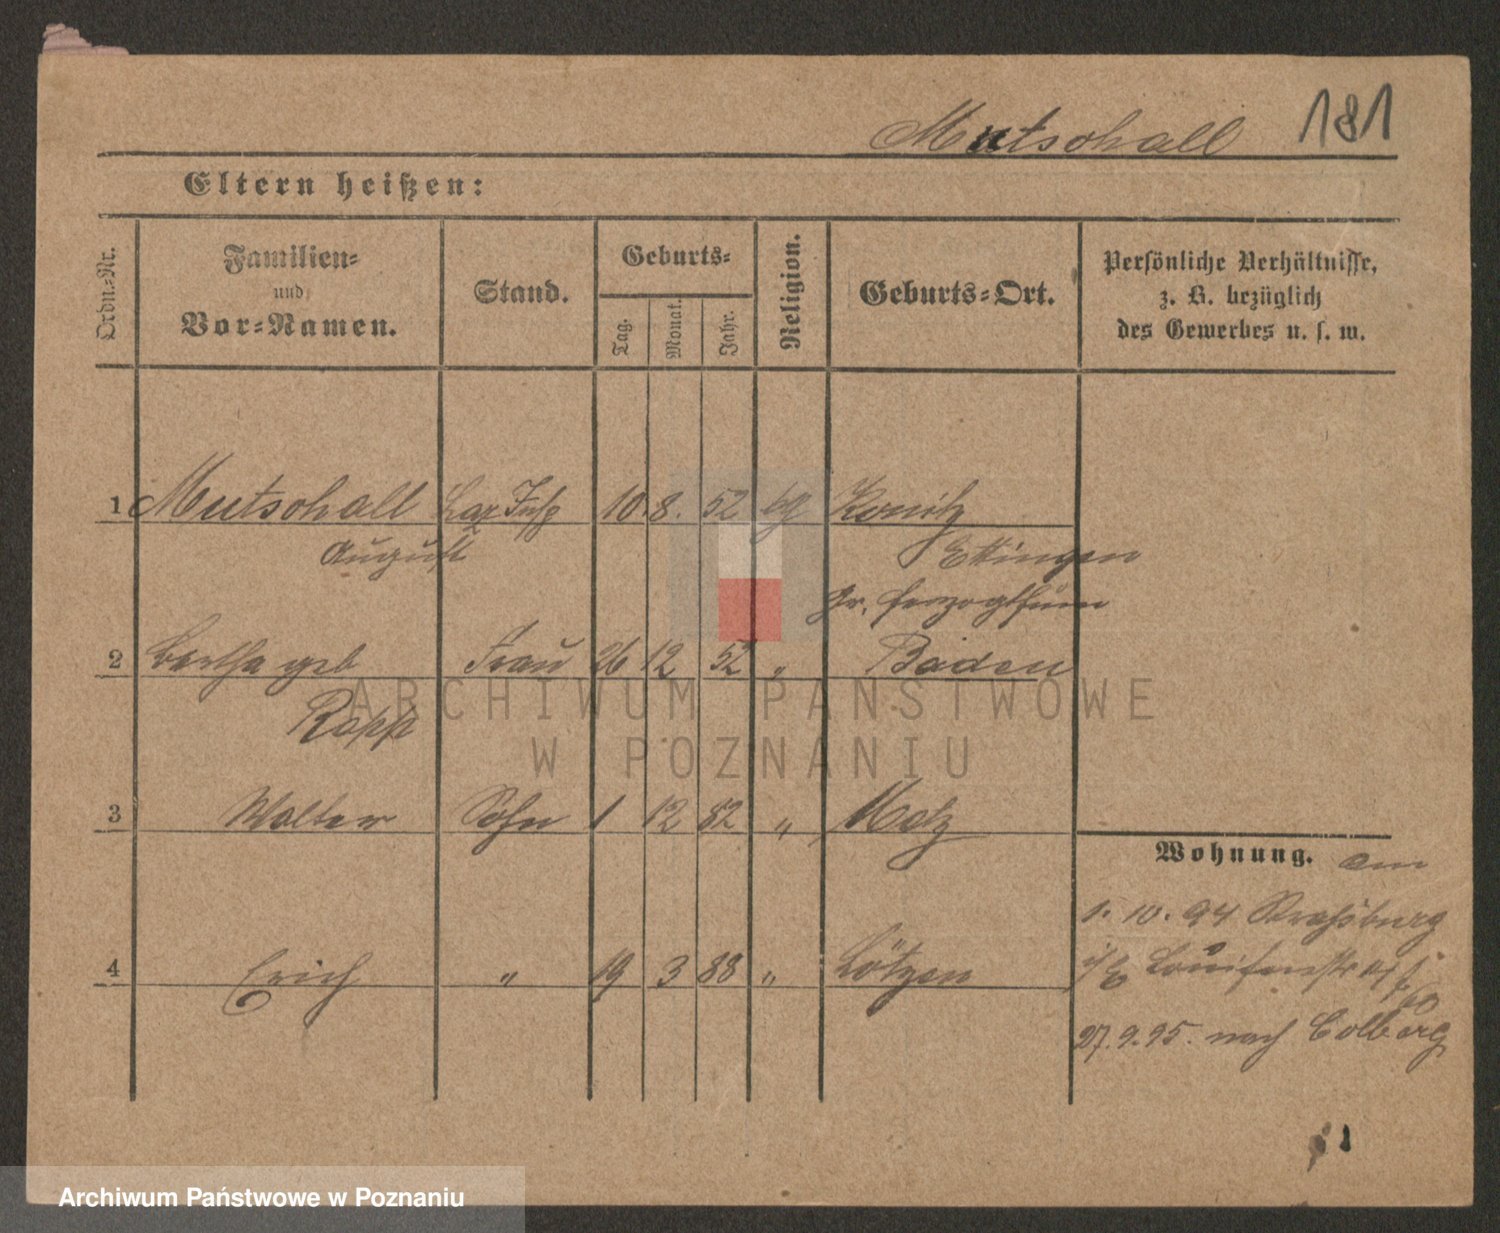 Mutschall 181
Eltern heißen:
Ordn.-Nr.
Familien-
und
Vor-Namen.
Stand.
Geburts-
Tag.
Monat.
Jahr.
Religion.
Geburts-Ort.
Persönliche Verhältnisse,
z. B. bezüglich
des Gewerbes u. s. w.
1 Mutschall Laz Insp 10. 8. 52 Konitz
August Ettingen
Gr. herzogthum
2 Bertha geb Frau 26 12 52 „ Baden
Rapp
ARCHIWUM PAŃSTWOWE
W POZNANIU
3 Walter Sohn 1 12 82 „ Metz
Wohnung. am
1. 10. 94 Straßburg
4 Erich „ 19 3 88 „ Lötzen
i/E Louisenstr
27. 9. 95. nach Colberg
Archiwum Państwowe w Poznaniu